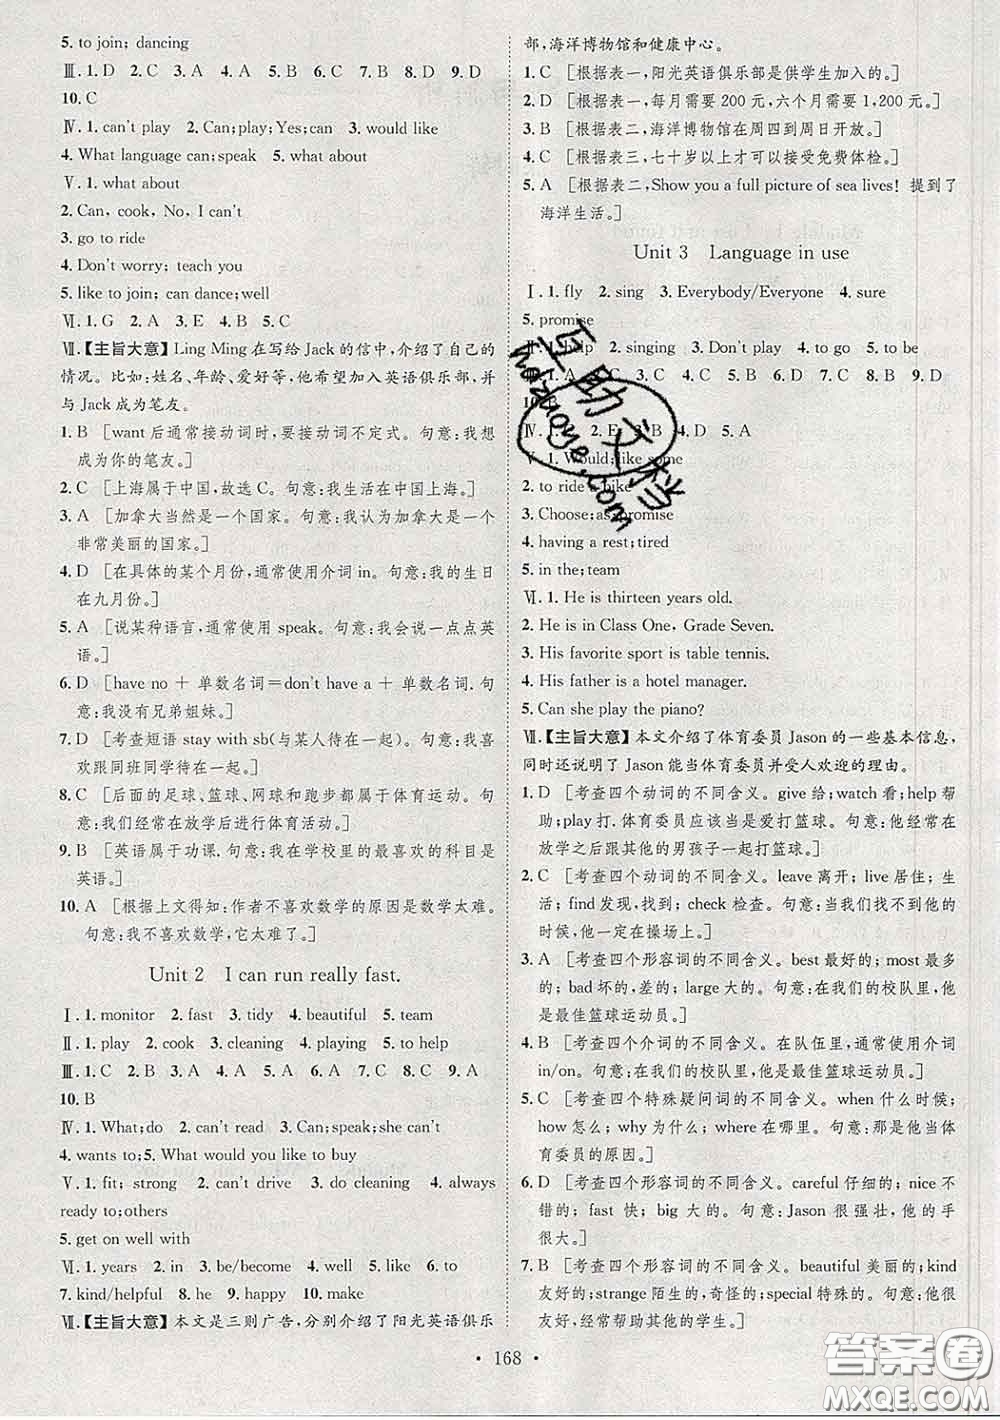 5. to join; dancing
Ⅲ. 1. D 2. C 3. A 4. A 5. B 6. C 7. D 8. B 9. D
10. C
Ⅳ. 1. can't play 2. Can;play;Yes;can 3. would like
4. What language can;speak 5. what about
Ⅴ. 1. what about
2. Can, cook, No, I can't
3. go to ride
4. Don't worry; teach you
5. like to join; can dance;well
Ⅵ. 1. G 2. A 3. E 4. B 5. C
Ⅶ.【主旨大意】Ling Ming 在写给 Jack 的信中,介绍了自己的
情况。比如:姓名、年龄、爱好等,他希望加入英语俱乐部,并
与 Jack 成为笔友。
1. B [want 后通常接动词时,要接动词不定式。句意:我想
成为你的笔友。]
2. C [上海属于中国,故选 C。句意:我生活在中国上海。]
3. A [加拿大当然是一个国家。句意:我认为加拿大是一个
非常美丽的国家。]
4. D [在具体的某个月份,通常使用介词 in。句意:我的生日
在九月份。]
5. A [说某种语言,通常使用 speak。句意:我会说一点点英
语。]
6. D [have no + 单数名词=don't have a + 单数名词. 句
意:我没有兄弟姐妹。]
7. D [考查短语 stay with sb(与某人待在一起)。句意:我喜
欢跟同班同学待在一起。]
8. C [后面的足球、篮球、网球和跑步都属于体育运动。句
意:我们经常在放学后进行体育活动。]
9. B [英语属于功课. 句意:我在学校里的最喜欢的科目是
英语。]
10. A [根据上文得知:作者不喜欢数学的原因是数学太难。
句意:我不喜欢数学,它太难了。]
Unit 2 I can run really fast.
Ⅰ. 1. monitor 2. fast 3. tidy 4. beautiful 5. team
Ⅱ. 1. play 2. cook 3. cleaning 4. playing 5. to help
Ⅲ. 1. C 2. B 3. A 4. A 5. B 6. A 7. C 8. C 9. A
10. B
Ⅳ. 1. What;do 2. can't read 3. Can;speak;she can't
4. wants to;5. What would you like to buy
Ⅴ. 1. fit; strong 2. can't drive 3. do cleaning 4. always
ready to;others
5. get on well with
Ⅵ. 1. years 2. in 3. be/become 4. well 5. like 6. to
7. kind/helpful 8. he 9. happy 10. make
Ⅶ.【主旨大意】本文是三则广告,分别介绍了阳光英语俱乐
部,海洋博物馆和健康中心。
1. C [根据表一,阳光英语俱乐部是供学生加入的。]
2. D [根据表一,每月需要 200 元,六个月需要 1,200 元。]
3. B [根据表二,海洋博物馆在周四到周日开放。]
4. C [根据表三,七十岁以上才可以接受免费体检。]
5. A [根据表二,Show you a full picture of sea lives! 提到了
海洋生活。]
Unit 3 Language in use
Ⅰ. 1. fly 2. sing 3. Everybody/Everyone 4. sure
5. promise
Ⅱ. 1. help 2. singing 3. Don't play 4. to go 5. to be
Ⅲ. 1. A 2. C 3. C 4. C 5. D 6. B 7. D 8. B 9. D
10. B
Ⅳ. 1. 2. E 3. B 4. D 5. A
Ⅴ. 1. Would;like some
2. to ride a bike
3. Choose;as;promise
4. having a rest;tired
5. in the;team
Ⅵ. 1. He is thirteen years old.
2. He is in Class One, Grade Seven.
3. His favorite sport is table tennis.
4. His father is a hotel manager.
5. Can she play the piano?
Ⅶ.【主旨大意】本文介绍了体育委员 Jason 的一些基本信息,
同时还说明了 Jason 能当体育委员并受人欢迎的理由。
1. D [考查四个动词的不同含义。give 给;watch 看;help 帮
助;play 打. 体育委员应该当是爱打篮球。句意:他经常在
放学之后跟其他的男孩子一起打篮球。]
2. C [考查四个动词的不同含义。leave 离开; live 居住; 生
活; find 发现,找到; check 检查。句意:当我们找不到他的
时候,他一定在操场上。]
3. A [考查四个形容词的不同含义。best 最好的; most 最多
的; bad 坏的,差的; large 大的。句意:在我们的校队里,他
是最佳篮球运动员。]
4. B [考查四个介词的不同含义。在队伍里,通常使用介词
in/on。句意:在我们的校队里,他是最佳篮球运动员。]
5. C [考查四个特殊疑问词的不同含义。when 什么时候;
how 怎么; why 为什么; where 在哪里。句意:那是他当体
育委员的原因。]
6. D [考查四个形容词的不同含义。careful 仔细的; nice
不错的; fast 快; big 大的。句意:Jason 很强壮,他的手
很大。]
7. B [考查四个形容词的不同含义。beautiful 美丽的;kind
友好的;strange 陌生的,奇怪的;special 特殊的。句意:他很
友好,经常帮助其他的学生。]
• 168 •
互助文档
hdzuoye.com
答案圈
MXQE.COM